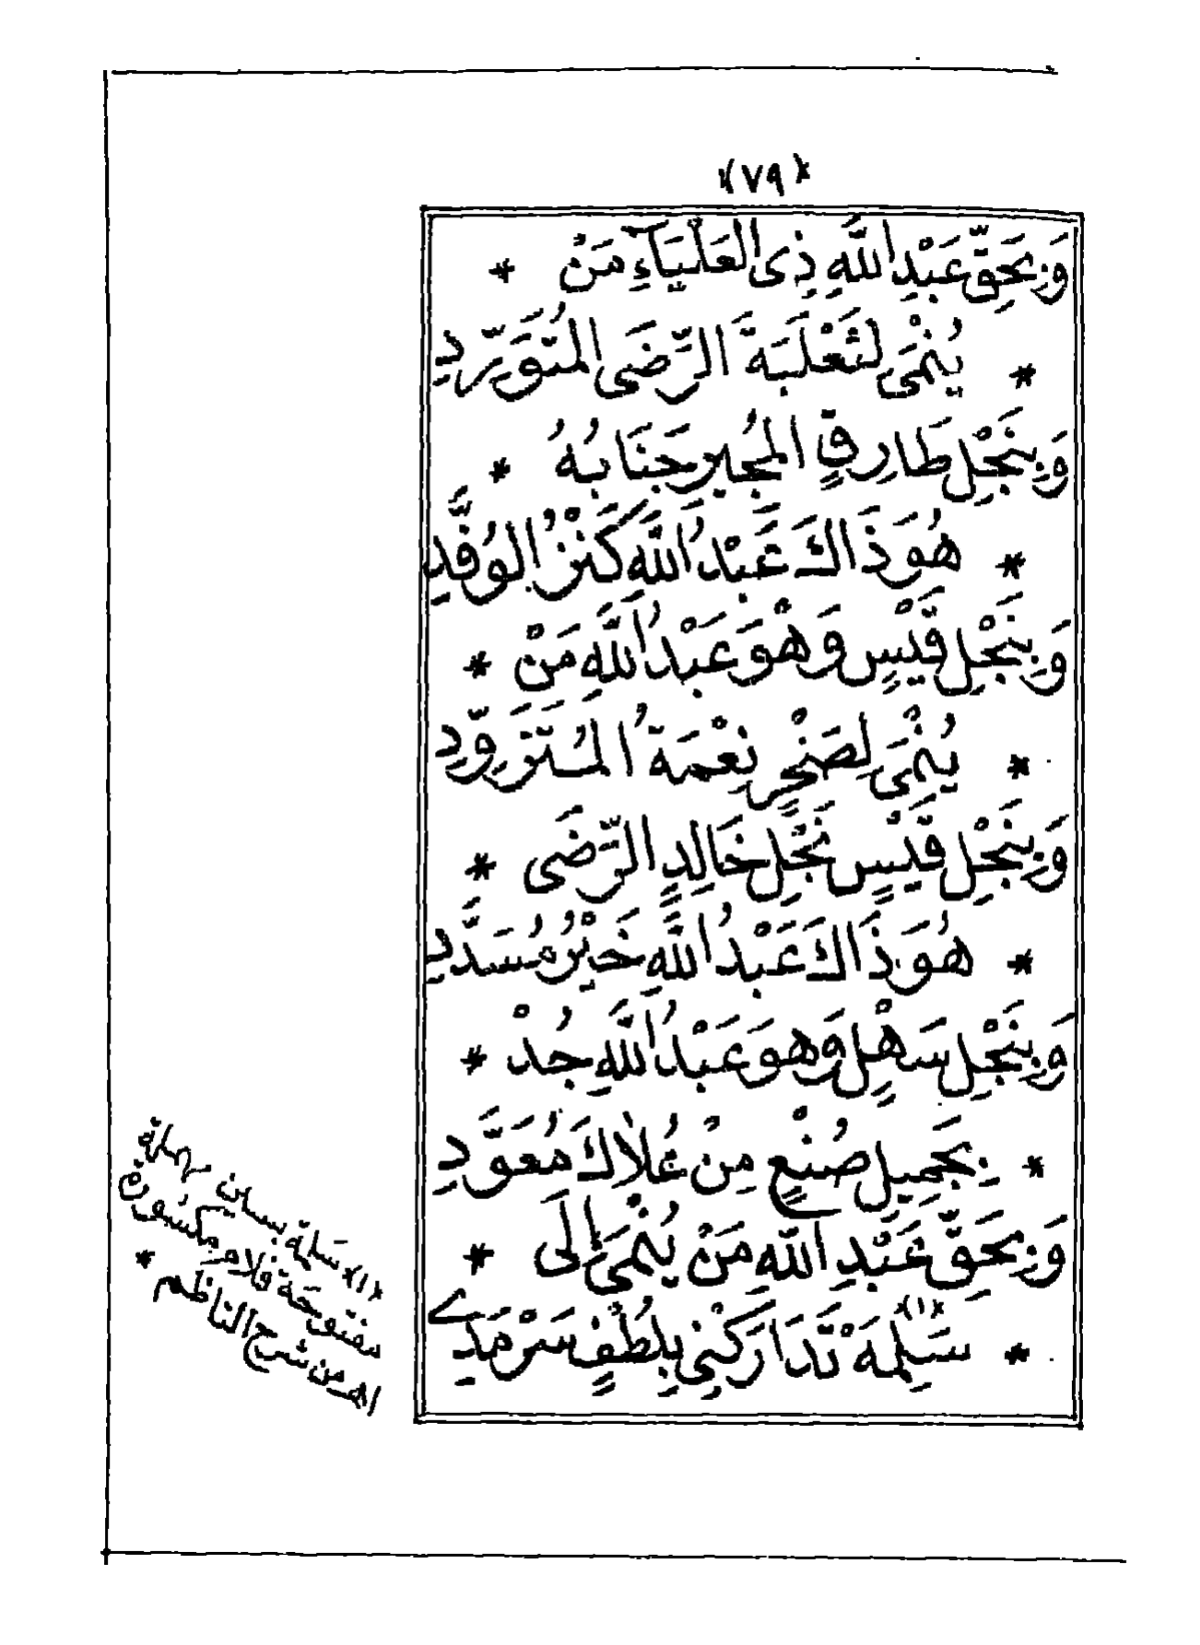 ﴿٧٩﴾
وَبِحَقِّ عَبْدِ اللَّهِ ذِى الْعَلْيَآءِ مَنْ *
* يُنْمَى لِثَعْلَبَةَ الرِّضَى الْمُتَوَرِّدِ
وَبِنَجْلِ طَارِقٍ الْمُجِيرِ جَنَابُهُ *
* هُوَ ذَاكَ عَبْدُ اللَّهِ كَنْزُ الْوُفَّدِ
وَبِنَجْلِ قَيْسٍ وَهْوَ عَبْدُ اللَّهِ مَنْ *
* يُنْمَى لِصَخْرٍ نِعْمَةُ الْمُتَزَوِّدِ
وَبِنَجْلِ قَيْسٍ نَجْلِ خَالِدٍ الرِّضَى *
* هُوَ ذَاكَ عَبْدُ اللَّهِ خَيْرُ مُسَدَّدِ
وَبِنَجْلِ سَهْلٍ وَهوَ عَبْدُ اللَّهِ جُدْ *
* بِجَمِيلِ صُنْعٍ مِنْ عُلَاكَ مُعَوَّدِ
وَبِحَقِّ عَبْدِ اللَّهِ مَنْ يُنْمَى إِلَى *
* سَلِمَةْ (١) تَدَارَكْنِى بِلُطْفٍ سَرْمَدِے
(١) سَلِمة بسين مهملة
مفتوحة فلام مكسورة
اهـ من شرح الناظم *